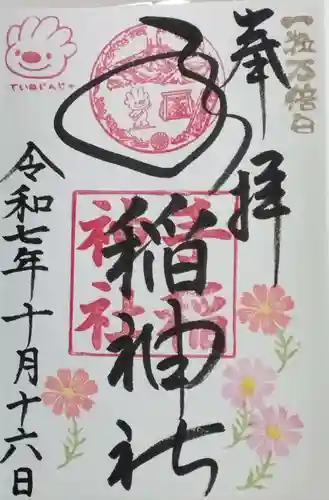 一粒万倍日
奉拝
手稲神社
手稲
神社
ていねじんじゃ
令和七年十月十六日